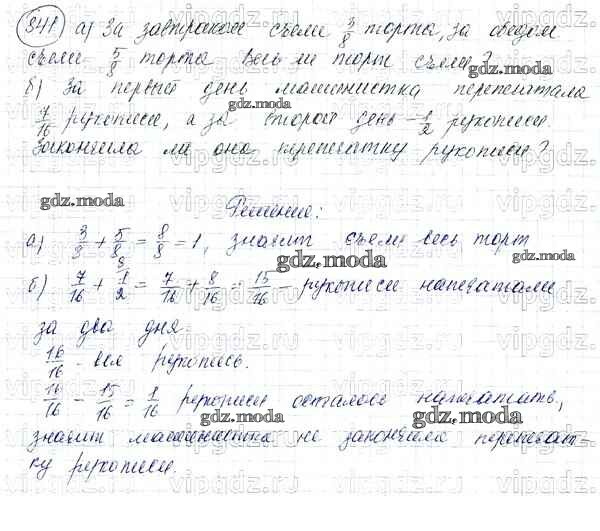 841 а) За завтраком съели 3/8 торта, за обедом
съели 5/8 торта. Весь ли торт съели?
б) За первый день машинистка перепечатала
7/16 рукописи, а за второй день - 1/2 рукописи.
Закончила ли она перепечатку рукописи?
Решение:
а) 3/8 + 5/8 = 8/8 = 1, значит съели весь торт
б) 7/16 + 1/2 = 7/16 + 8/16 = 15/16 - рукописи напечатали
за два дня.
16/16 - вся рукопись.
16/16 - 15/16 = 1/16 рукописи осталось напечатать,
значит машинистка не закончила перепечат-
ку рукописи.
gdz.moda
vipgdz.